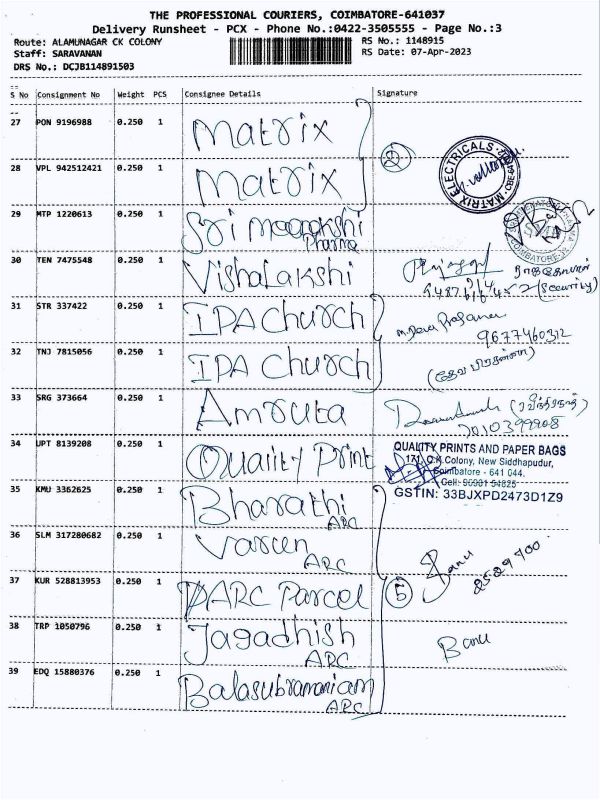 THE PROFESSIONAL COURIERS, COIMBATORE-641037
Delivery Runsheet - PCX - Phone No.:0422-3505555 - Page No.:3
Route: ALAMUNAGAR CK COLONY RS No.: 1148915
Staff: SARAVANAN RS Date: 07-Apr-2023
DRS No.: DCJB114891503
S No Consignment No Weight PCS Consignee Details Signature
27 PON 9196988 0.250 1 Matrix
28 VPL 942512421 0.250 1 Matrix
2
MATRIX ELECTRICALS
29 MTP 1220613 0.250 1 Sri Meenakshi
Pharma
COIMBATORE
30 TEN 7475548 0.250 1 Vishalakshi
(Security)
31 STR 337422 0.250 1 IPA Church
9677460312
32 TNJ 7815056 0.250 1 IPA Church
33 SRG 373664 0.250 1 Amruta
34 UPT 8139208 0.250 1 Quality Print
QUALITY PRINTS AND PAPER BAGS
171, C.K.Colony, New Siddhapudur,
Coimbatore - 641 044.
Cell: 90981 54825
GSTIN: 33BJXPD2473D1Z9
35 KMU 3362625 0.250 1 Bharathi
ARC
36 SLM 317280682 0.250 1 Varun
ARC
37 KUR 528813953 0.250 1 ARC Parcel
5
Banu
38 TRP 1050796 0.250 1 Jagadhish
ARC
Banu
39 EDQ 15880376 0.250 1 Balasubramaniam
ARC